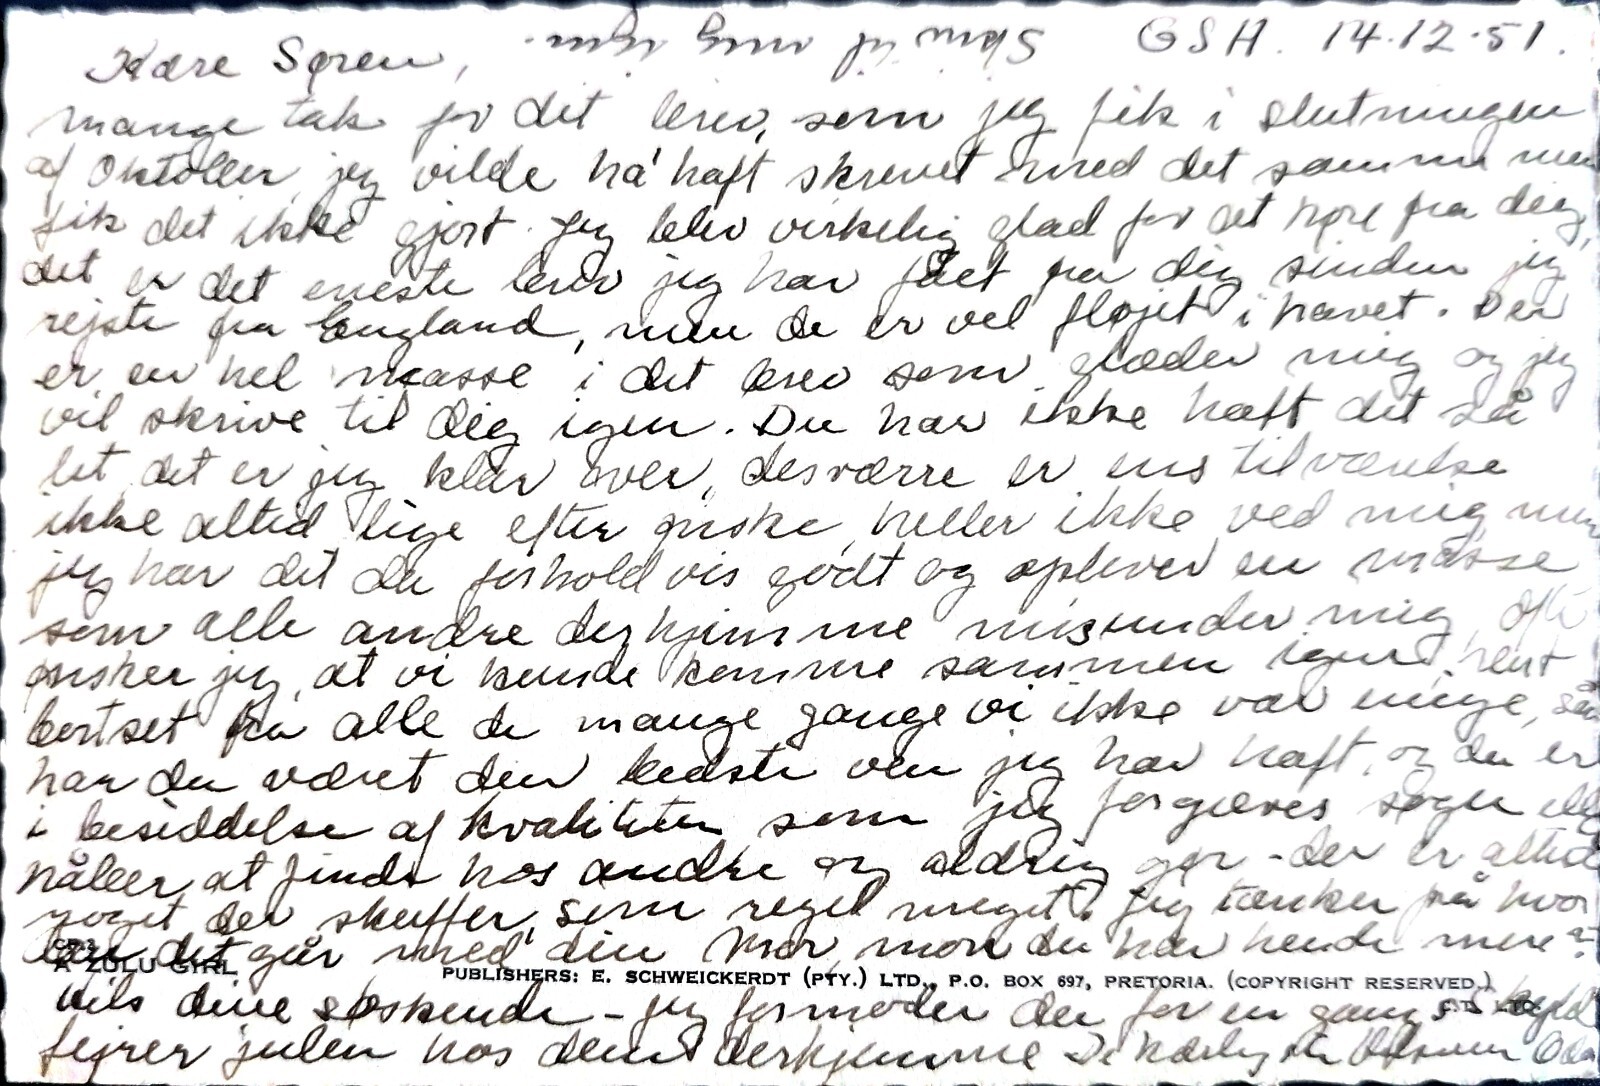 Kære Søren, GSH. 14.12.51.
Skriv til mig igen.
mange tak for dit brev, som jeg fik i slutningen
af Oktober, jeg vilde ha' haft skrevet med det samme men
fik det ikke gjort. Jeg blev virkelig glad for at høre fra dig,
det er det eneste brev jeg har fået fra dig sinden jeg
rejste fra England, men de er vel fløjet i havet. Der
er en hel masse i dit brev som glæder mig og jeg
vil skrive til dig igen. Du har ikke haft det så
let, det er jeg klar over, desværre er ens tilværelse
ikke altid lige efter ønske, heller ikke ved mig, men
jeg har det da forholdvis godt og oplever en masse
som alle andre derhjemme misunder mig. Ofte
ønsker jeg, at vi kunde komme sammen igen, helt
bortset fra alle de mange gange vi ikke var enige, så
har du været den bedste ven jeg har haft, og du er
i besiddelse af kvaliteter, som jeg forgæves søger eller
håber at finde hos andre og aldrig gør - der er altid
noget der skuffer, som regel meget. Jeg tænker på hvor
dan det går med din Mor, mon du har hende mere?
CP.3
A ZULU GIRL
PUBLISHERS: E. SCHWEICKERDT (PTY.) LTD., P.O. BOX 697, PRETORIA. (COPYRIGHT RESERVED.)
hils dine søskende - jeg formoder du for en gangs skyld
fejrer julen hos dem derhjemme De kærligste hilsener